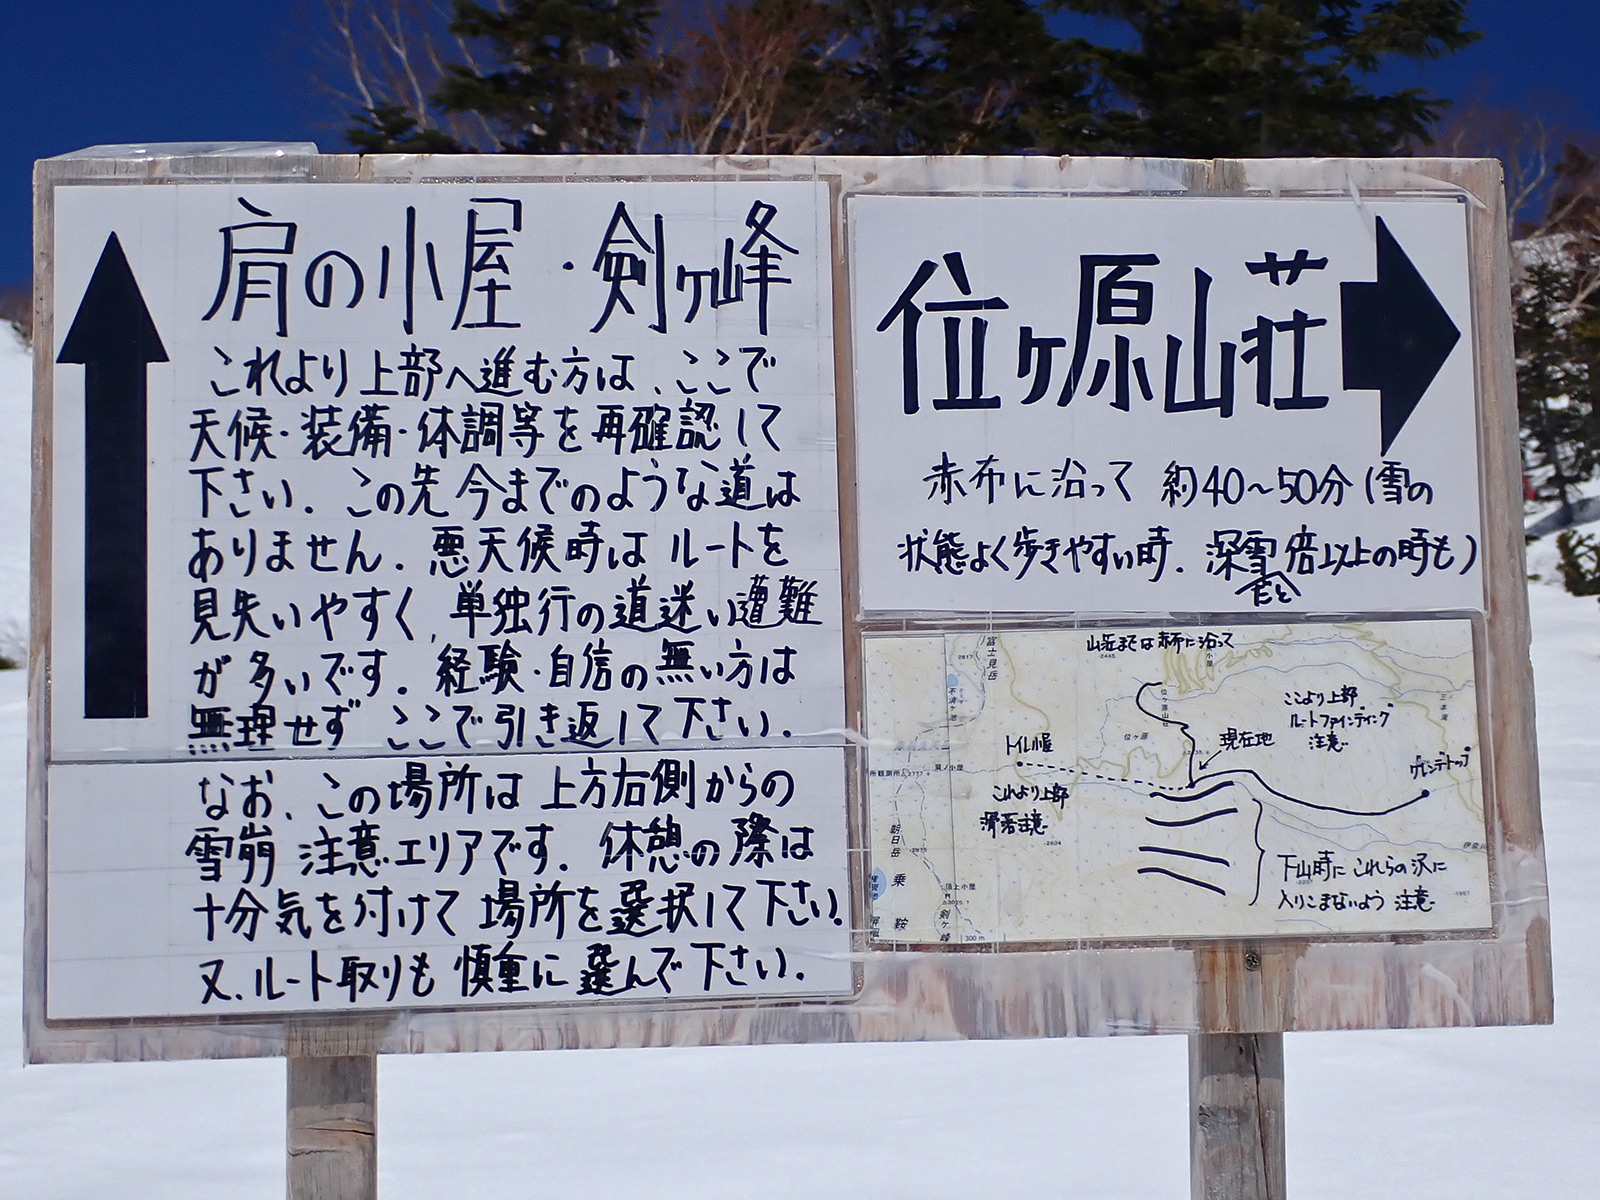 肩の小屋・剣ヶ峰
これより上部へ進む方は、ここで
天候・装備・体調等を再確認して
下さい。この先今までのような道は
ありません。悪天候時はルートを
見失いやすく、単独行の道迷い遭難
が多いです。経験・自信の無い方は
無理せず ここで引き返して下さい。
なお、この場所は上方右側からの
雪崩 注意エリアです。休憩の際は
十分気を付けて 場所を選択して下さい。
又、ルート取りも 慎重に 選んで下さい。
位ヶ原山荘
赤布に沿って 約40〜50分(雪の
状態よく歩きやすい時。深雪だと倍以上の時も)
山荘までは赤布に沿って
富士見岳
小屋
不消ヶ池
位ヶ原山荘
位ヶ原
三本滝
ここより上部
ルートファインディング
注意
現在地
トイレ小屋
肩ノ小屋
ゲレンデトップ
これより上部
滑落注意
朝日岳
乗
鞍
頂上小屋
剣ヶ峰
300m
下山時に これらの沢に
入りこまないよう 注意